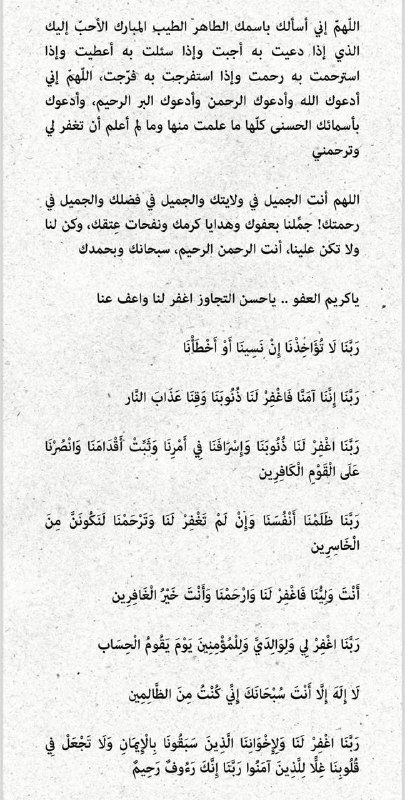 اللّهمّ إني أسألك باسمك الطاهر الطيب المبارك الأحبّ إليك
الذي إذا دعيت به أجبت وإذا سئلت به أعطيت وإذا
استرحمت به رحمت وإذا استفرجت به فرّجت، اللّهمّ إني
أدعوك الله وأدعوك الرحمن وأدعوك البر الرحيم، وأدعوك
بأسمائك الحسنى كلّها ما علمت منها وما لم أعلم أن تغفر لي
وترحمني
اللهم أنت الجميل في ولايتك والجميل في فضلك والجميل في
رحمتك! جمِّلنا بعفوك وهدايا كرمك ونفحات عِتقك، وكن لنا
ولا تكن علينا، أنت الرحمن الرحيم، سبحانك وبحمدك
ياكريم العفو .. ياحسن التجاوز اغفر لنا واعف عنا
رَبَّنَا لَا تُؤَاخِذْنَا إِنْ نَسِينَا أَوْ أَخْطَأْنَا
رَبَّنَا إِنَّنَا آمَنَّا فَاغْفِرْ لَنَا ذُنُوبَنَا وَقِنَا عَذَابَ النَّار
رَبَّنَا اغْفِرْ لَنَا ذُنُوبَنَا وَإِسْرَافَنَا فِي أَمْرِنَا وَثَبِّتْ أَقْدَامَنَا وَانْصُرْنَا
عَلَى الْقَوْمِ الْكَافِرِين
رَبَّنَا ظَلَمْنَا أَنْفُسَنَا وَإِنْ لَمْ تَغْفِرْ لَنَا وَتَرْحَمْنَا لَنَكُونَنَّ مِنَ
الْخَاسِرِين
أَنْتَ وَلِيُّنَا فَاغْفِرْ لَنَا وَارْحَمْنَا وَأَنْتَ خَيْرُ الْغَافِرِين
رَبَّنَا اغْفِرْ لِي وَلِوَالِدَيَّ وَلِلْمُؤْمِنِينَ يَوْمَ يَقُومُ الْحِسَاب
لَا إِلَهَ إِلَّا أَنْتَ سُبْحَانَكَ إِنِّي كُنْتُ مِنَ الظَّالِمِين
رَبَّنَا اغْفِرْ لَنَا وَلِإِخْوَانِنَا الَّذِينَ سَبَقُونَا بِالْإِيمَانِ وَلَا تَجْعَلْ فِي
قُلُوبِنَا غِلًّا لِلَّذِينَ آمَنُوا رَبَّنَا إِنَّكَ رَءُوفٌ رَحِيمٌ